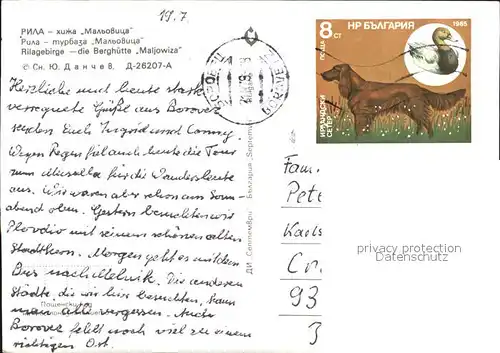 19.7
РИЛА – хижа „Мальовица"
Рила – турбаза „Мальовица"
Rilagebirge – die Berghütte „Maljowiza"
© Сн. Ю. Данчев. Д-26207-А
Herzliche und heute stark
verregnete Grüße aus Borovez
senden Euch Ingrid und Conny
Wegen Regen fiel auch heute die Tour
zum Musalla für die Wandersleute
aus. Wir waren aber schon am Sonn-
abend oben. Gestern besuchten wir
Plovdiv mit seinem schönen alten
Stadtkern. Morgen geht es mit dem
Bus nach Melnik. Die anderen
Städte, die wir hier besuchten, kann
man alle vergessen. Auch
Borovez fehlt noch viel zu einem
richtigen Ort.
ДИ „Септември" България „Septemvri"
8 СТ
НР БЪЛГАРИЯ
1985
ПОЩА
ИРЛАНДСКИ
СЕТЕР
БОРОВЕЦ
Fam.
Pete
Karls
Cr
93
3
privacy protection
Datenschutz